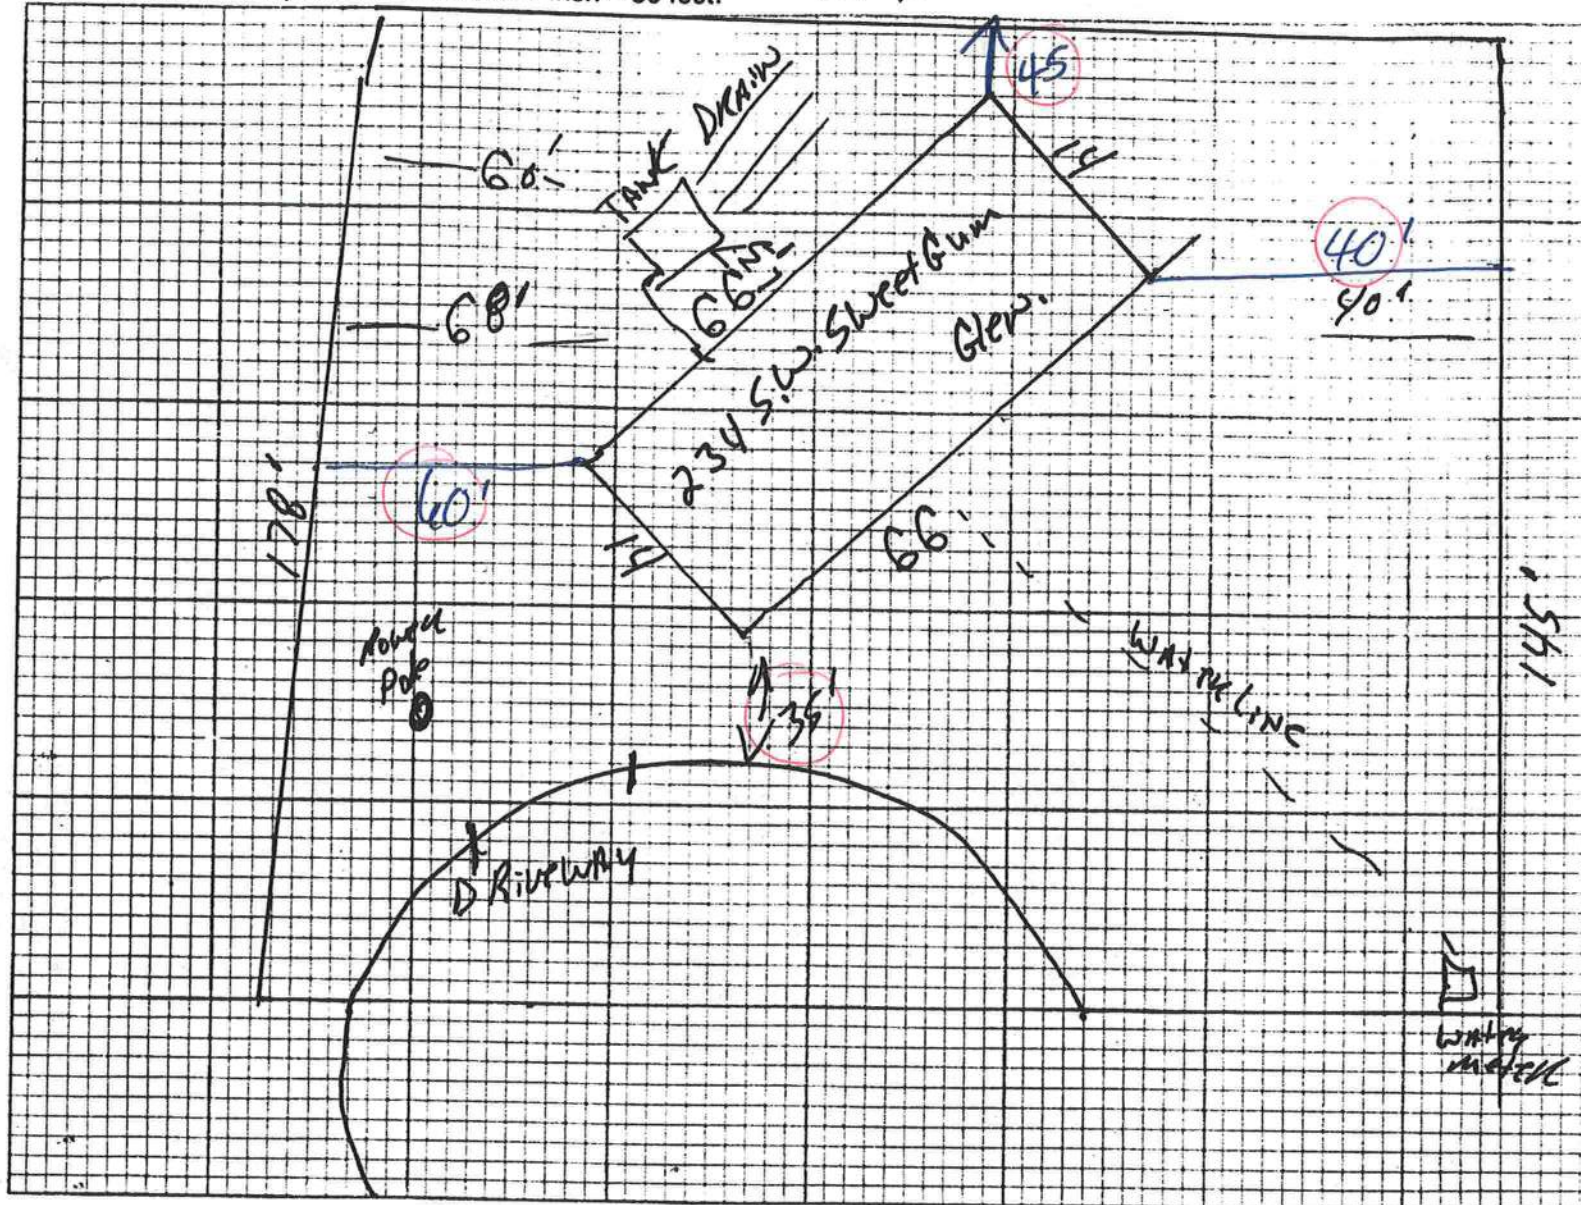 45
TANK DRAIN
14
60'
40'
40'
68'
66'
234 S.W. Sweet Gum
Glen.
178'
60'
14
66'
145'
Power
Pole
35'
WATER LINE
DRIVEWAY
Water
meter